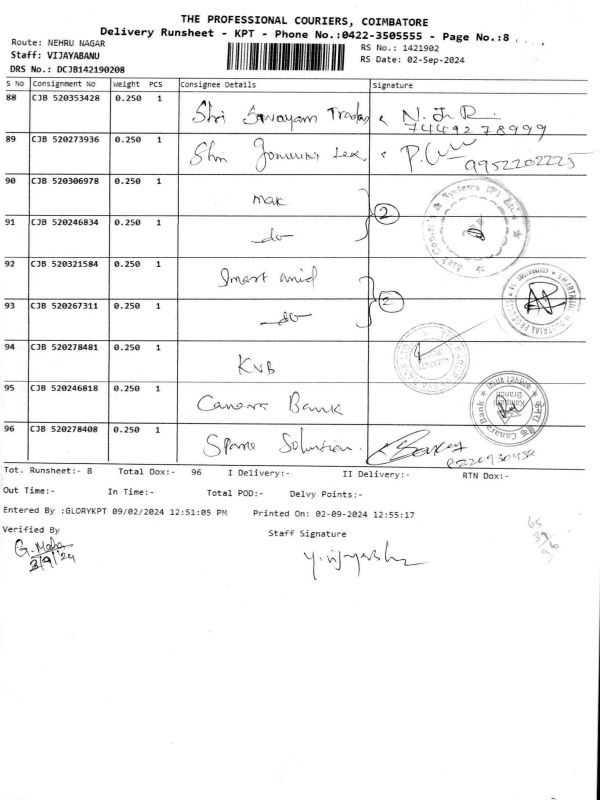 THE PROFESSIONAL COURIERS, COIMBATORE
Delivery Runsheet - KPT - Phone No.:0422-3505555 - Page No.:8
Route: NEHRU NAGAR
RS No.: 1421902
Staff: VIJAYABANU
RS Date: 02-Sep-2024
DRS No.: DCJB142190208
S No Consignment No Weight PCS Consignee Details Signature
88 CJB 520353428 0.250 1 Shri Swayam Traders N.
7449278999
89 CJB 520273936 0.250 1 9952202225
90 CJB 520306978 0.250 1 mak
2
91 CJB 520246834 0.250 1 do
92 CJB 520321584 0.250 1 Smart
2
93 CJB 520267311 0.250 1 do
94 CJB 520278481 0.250 1 KVB
95 CJB 520246818 0.250 1 Canara Bank
Canara Bank
96 CJB 520278408 0.250 1 Solution
Tot. Runsheet:- 8 Total Dox:- 96 I Delivery:- II Delivery:- RTN Dox:-
Out Time:- In Time:- Total POD:- Delvy Points:-
Entered By :GLORYKPT 09/02/2024 12:51:05 PM Printed On: 02-09-2024 12:55:17
Verified By Staff Signature
G. Maha
3/9/24